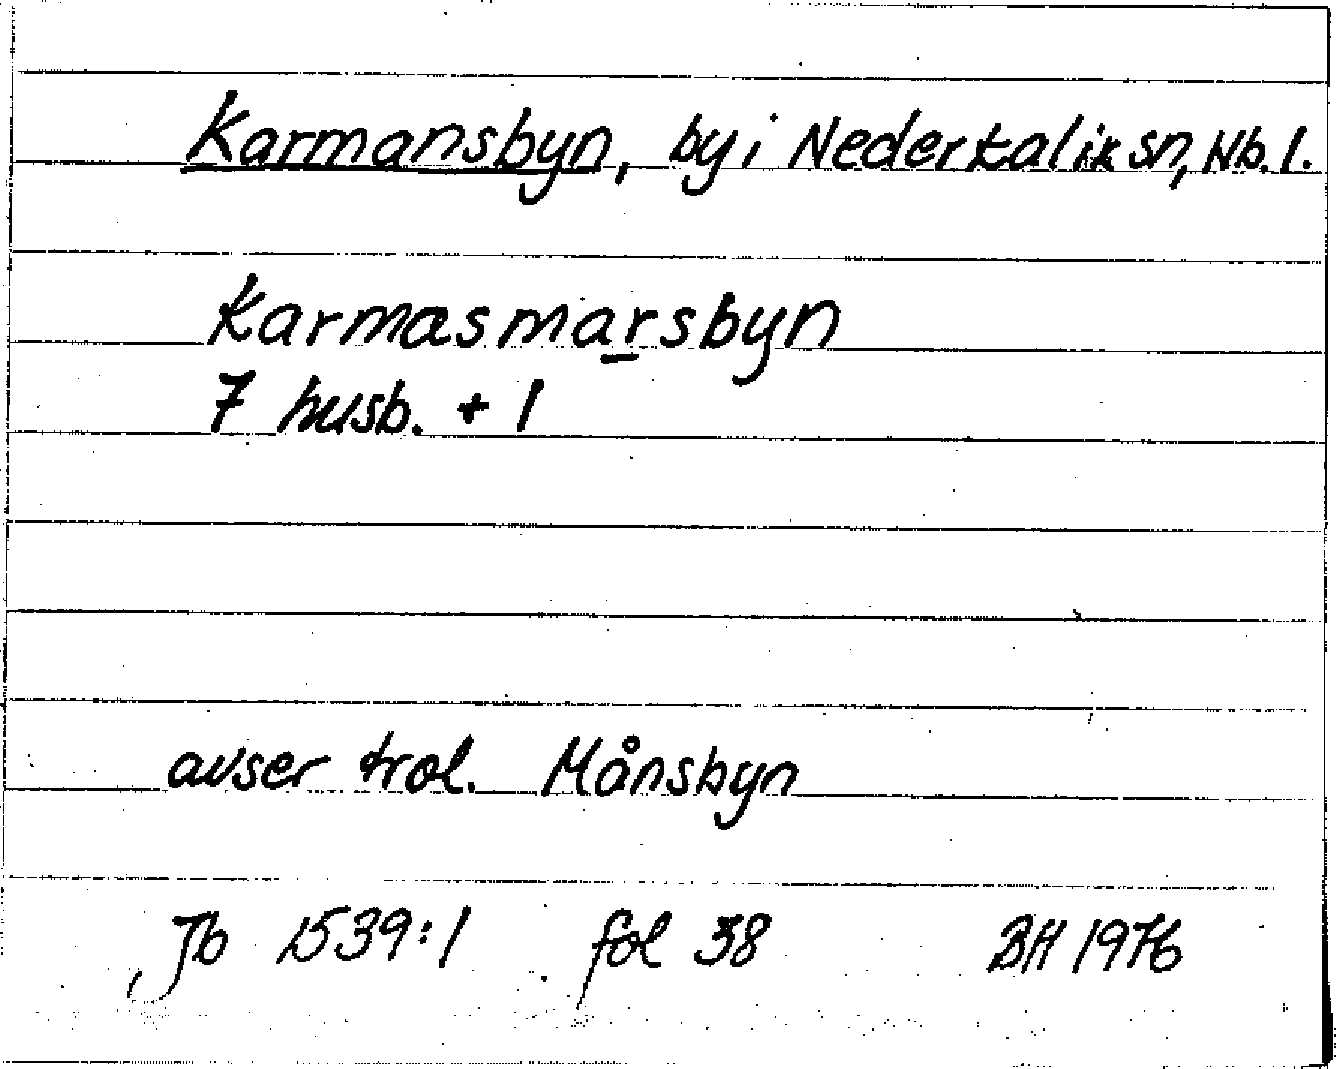 Karmansbyn, by i Nederkalix sn, Nb. l.
Karmæsmarsbyn
7 husb. + 1
avser trol. Månsbyn
Jb 1539:1 fol 38 BH 1976